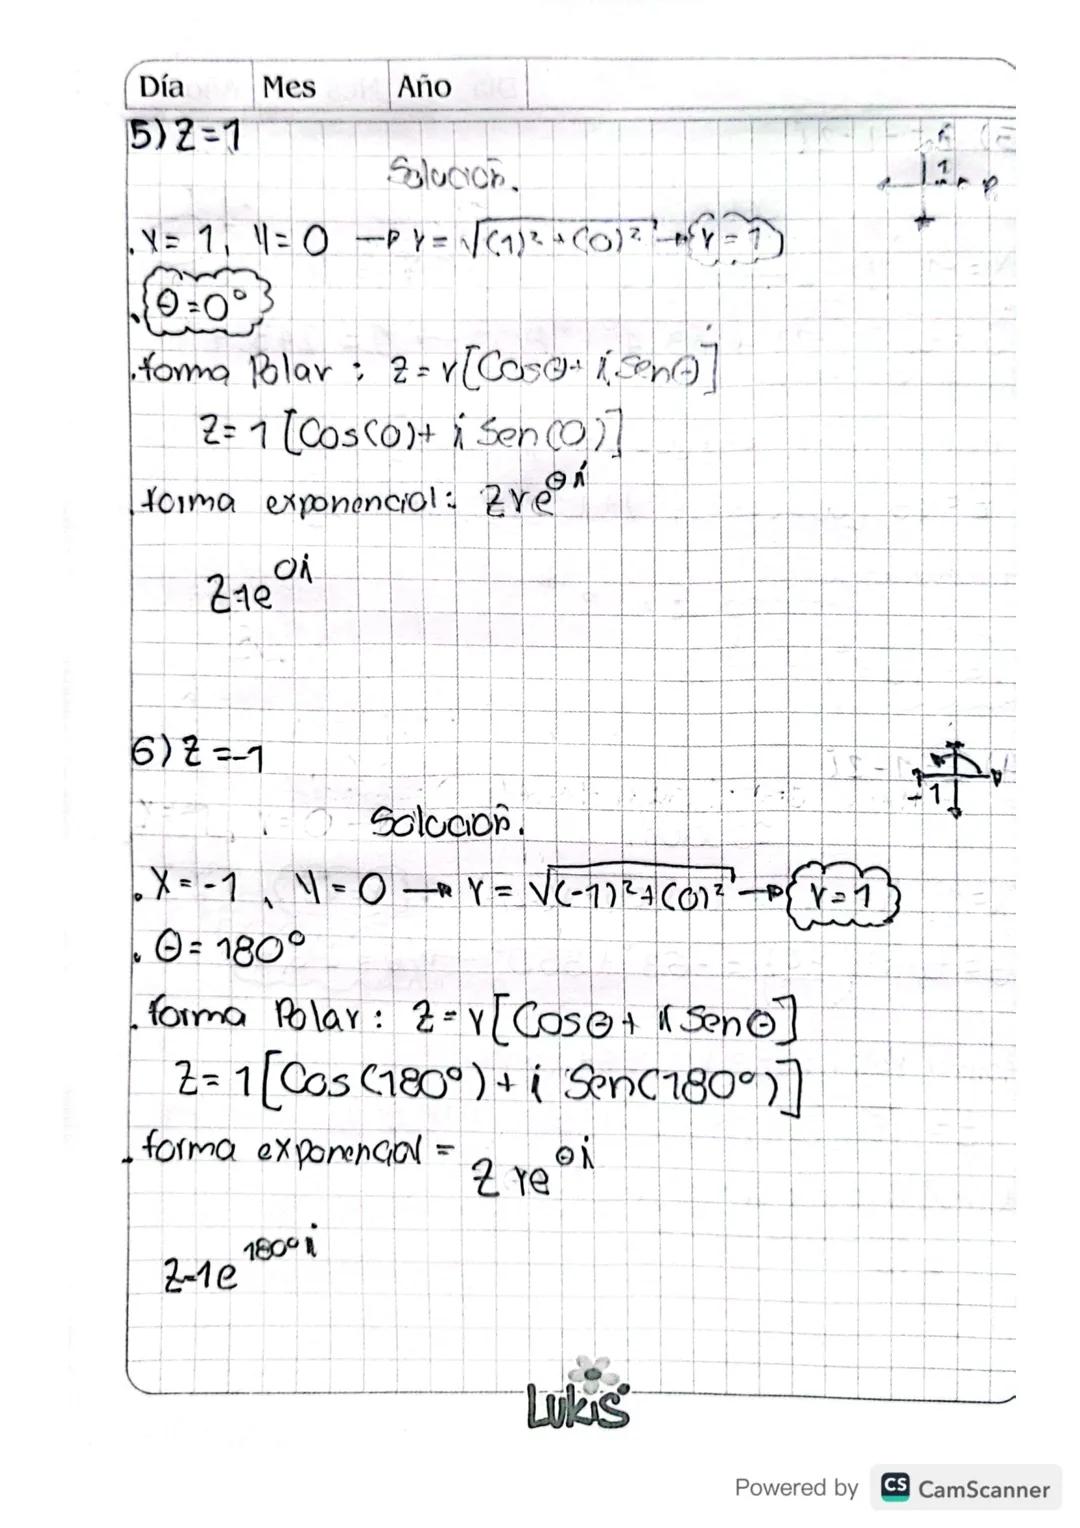 Día Mes Año
5) Z=1
Solución.
1
. X= 1, Y=0 → r= √(1)²+(0)² → r=1
. θ=0°
. forma Polar : Z=r[Cosθ+ i Senθ]
Z= 1 [Cos(0)+ i Sen(0)]
. forma exponencial: Z re^θi
Z=1e^0i
6) Z=-1
-1
Solución.
. X=-1, Y=0 → r= √(-1)²+(0)² → r=1
. θ= 180°
. forma Polar: Z=r[Cosθ+ i Senθ]
Z= 1[Cos(180°)+ i Sen(180°)]
. forma exponencial = Z re^θi
Z=1e^180°i
Lukis
Powered by CS CamScanner